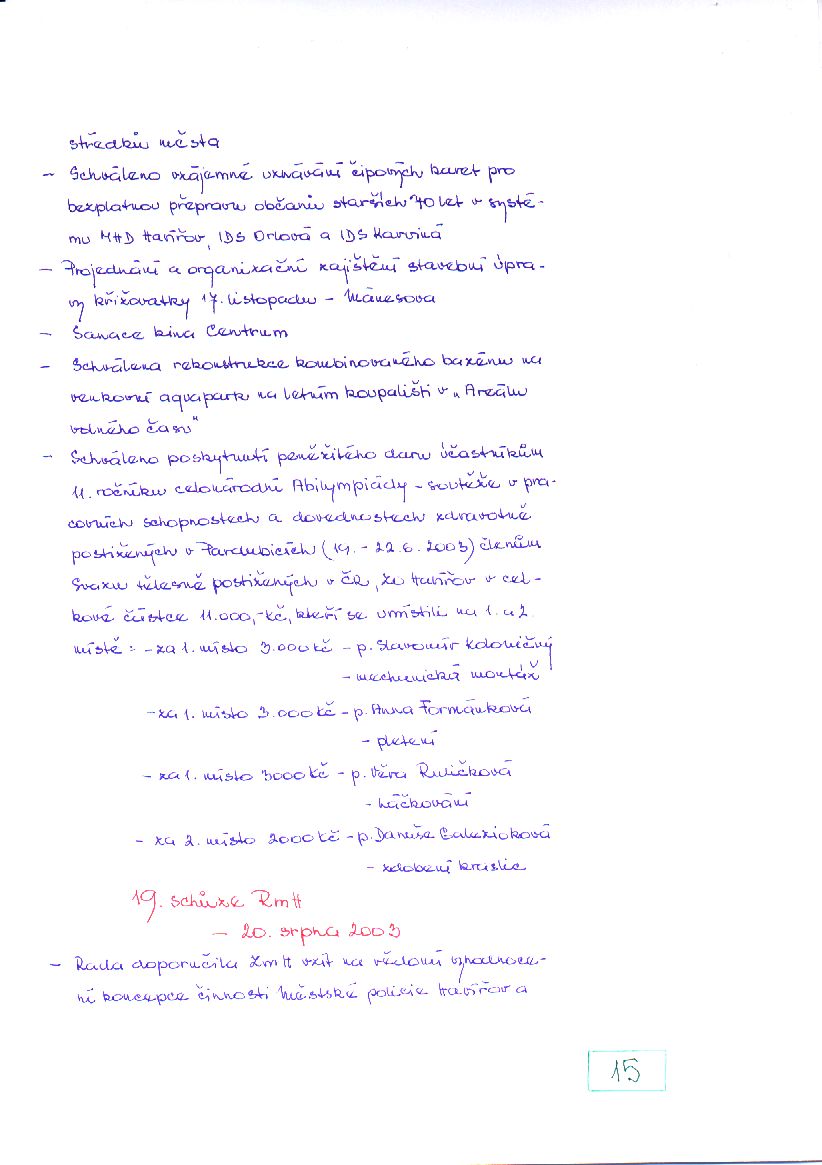 středků města
- Schváleno vzájemné uznávání čipových karet pro
bezplatnou přepravu občanů starších 70 let v systé-
mu MHD Havířov, IDS Orlová a IDS Karviná
- Projednání a organizační zajištění stavební úpra-
vy křižovatky 17. listopadu - Mánesova
- Sanace kina Centrum
- Schválena rekonstrukce kombinovaného bazénu na
venkovní aquapark na letním koupališti v „Areálu
volného času"
- Schváleno poskytnutí peněžitého daru účastníkům
11. ročníku celonárodní Abilympiády - soutěže v pra-
covních schopnostech a dovednostech zdravotně
postižených v Pardubicích (19. - 22. 6. 2003) členům
Svazu tělesně postižených v ČR, ZO Havířov v cel-
kové částce 11.000,- Kč, kteří se umístili na 1. a 2.
místě: - za 1. místo 3.000 Kč - p. Slavomír Kdoničný
- mechanická montáž
- za 1. místo 3.000 Kč - p. Anna Formánková
- pletení
- za 1. místo 3000 Kč - p. Věra Ruličková
- háčkování
- za 2. místo 2000 Kč - p. Danuše
- zdobení kraslic
19. schůze RmH
- 20. srpna 2003
- Rada doporučila ZmH vzít na vědomí vyhodnoce-
ní koncepce činnosti Městské policie Havířov a
15